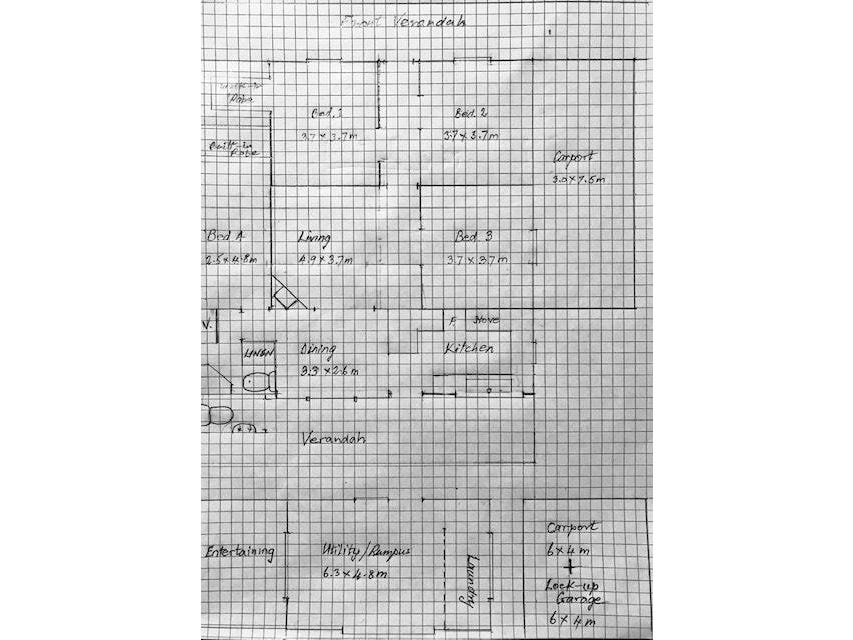 Front Verandah
Walk-in
Robe
Bed 1
3.7 x 3.7m
Bed 2
3.7 x 3.7m
Built-in
Robe
Carport
3.0 x 7.5m
Bed 4
2.5 x 4.8m
Living
4.9 x 3.7m
Bed 3
3.7 x 3.7m
V.
F.
Stove
LINEN
Dining
3.3 x 2.6m
Kitchen
Verandah
Entertaining
Utility/Rumpus
6.3 x 4.8m
Laundry
Carport
6 x 4m
+
Lock-up
Garage
6 x 4m